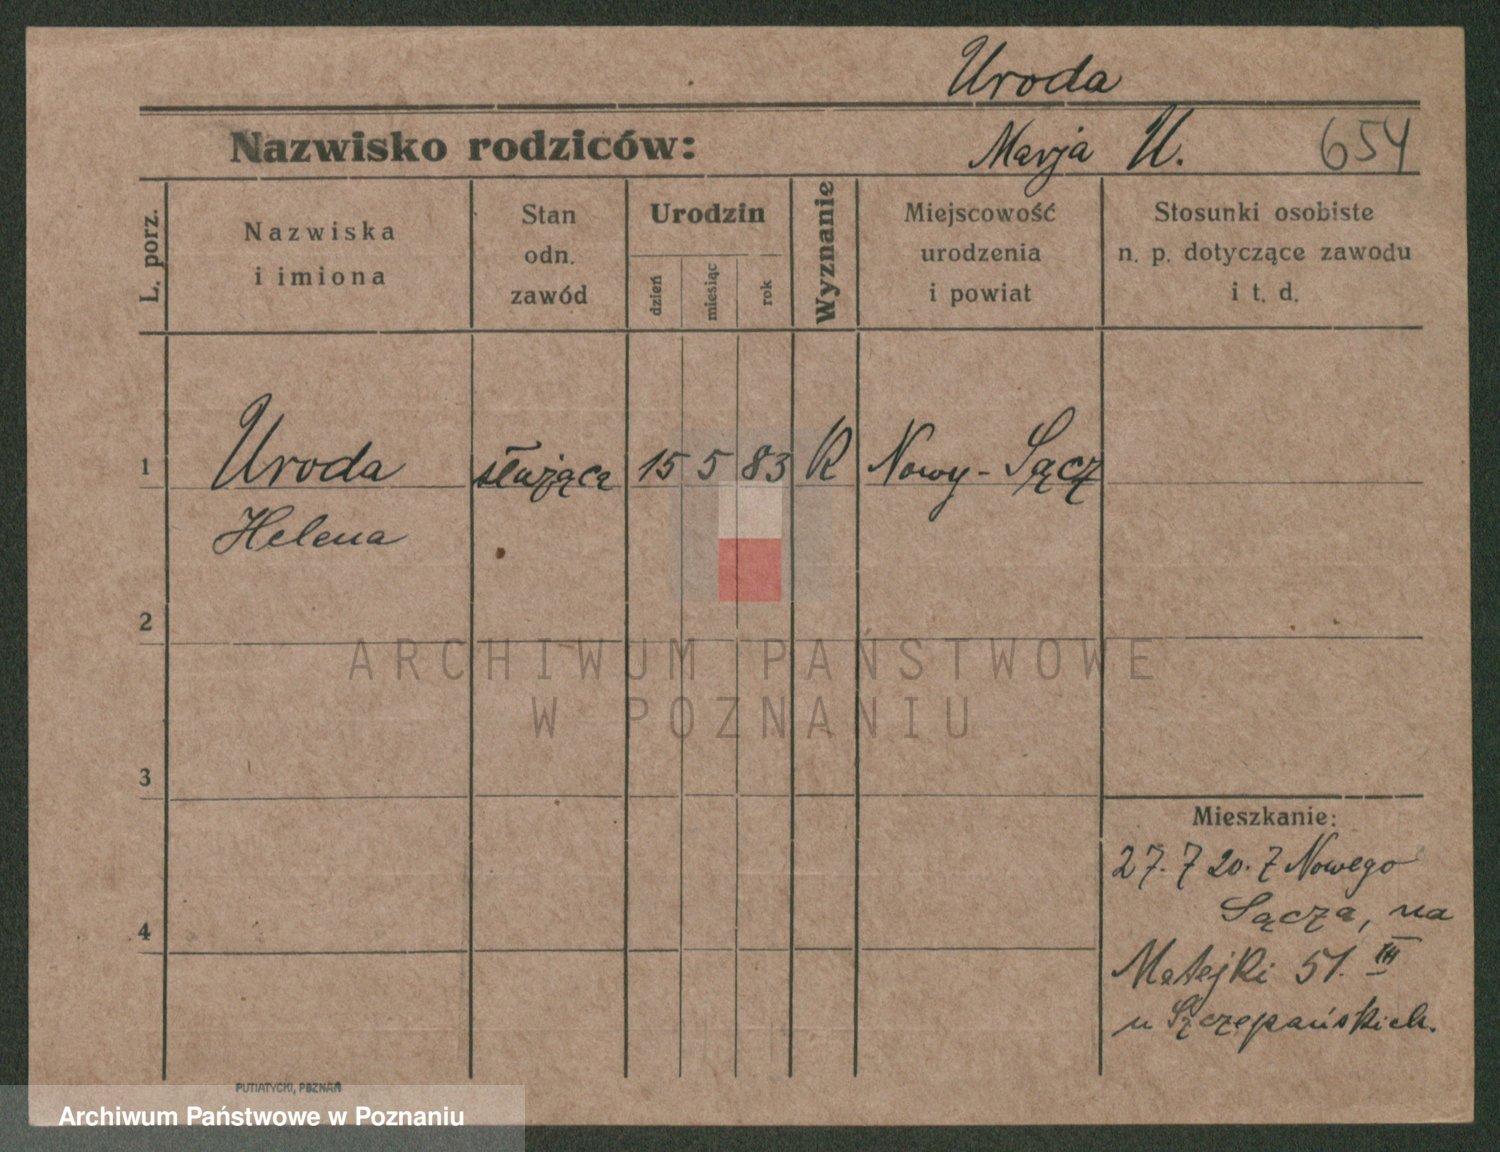 Uroda
Nazwisko rodziców: Marja U. 654
L. porz.
Nazwiska
i imiona
Stan
odn.
zawód
Urodzin
dzień
miesiąc
rok
Wyznanie
Miejscowość
urodzenia
i powiat
Stosunki osobiste
n. p. dotyczące zawodu
i t. d.
1 Uroda służąca 15 5 83 R Nowy-Sącz
Helena
2
3
4
Mieszkanie:
27. 7 20. Z Nowego
Sącza, na
Matejki 51. III
u Szczepańskich.
PUTIATYCKI, POZNAŃ
ARCHIWUM PAŃSTWOWE
W POZNANIU
Archiwum Państwowe w Poznaniu